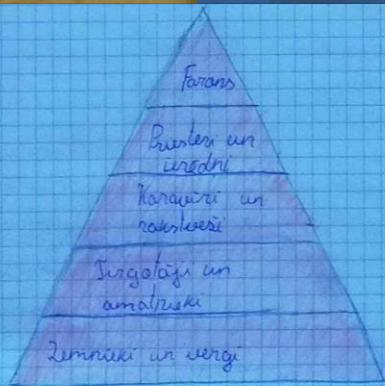 Faraons
Priesteri un
ierēdņi
Karavīri un
rakstveži
Tirgotāji un
amatnieki
Zemnieki un vergi